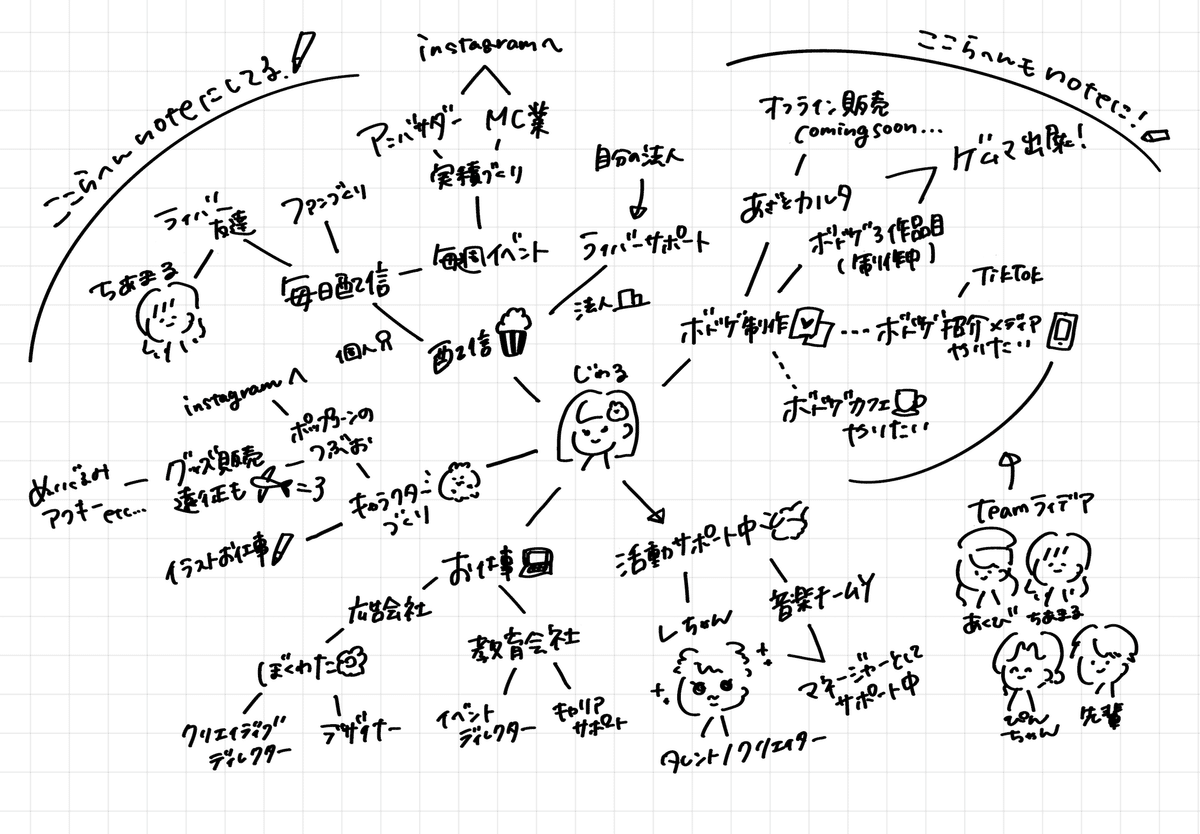 ここらへん noteにしてる!
ここらへんも noteに!
instagramへ
アンバサダー
MC業
実積づくり
毎週イベント
ライバー
友達
ファンづくり
ちあまる
毎日配信
配信
個人
自分の法人
ライバーサポート
法人
オンライン販売
coming soon...
ゲムマ出展!
あざとカルタ
ボドゲ3作品目
(制作中)
TikTok
ボドゲ制作
...
ボドゲ紹介メディア
やりたい
ボドゲカフェ
やりたい
じわる
instagramへ
ポップコーンの
つぶお
グッズ販売
遠征も
=3
ぬいぐるみ
アクキーetc...
キャラクター
づくり
イラストお仕事
お仕事
広告会社
ぼくわた
クリエイティブ
ディレクター
デザイナー
教育会社
イベント
ディレクター
キャリア
サポート
活動サポート中
レちゃん
タレント/クリエイター
音楽チームY
マネージャーとして
サポート中
teamライデア
あくび
ちあまる
ぴん
ちゃん
先輩